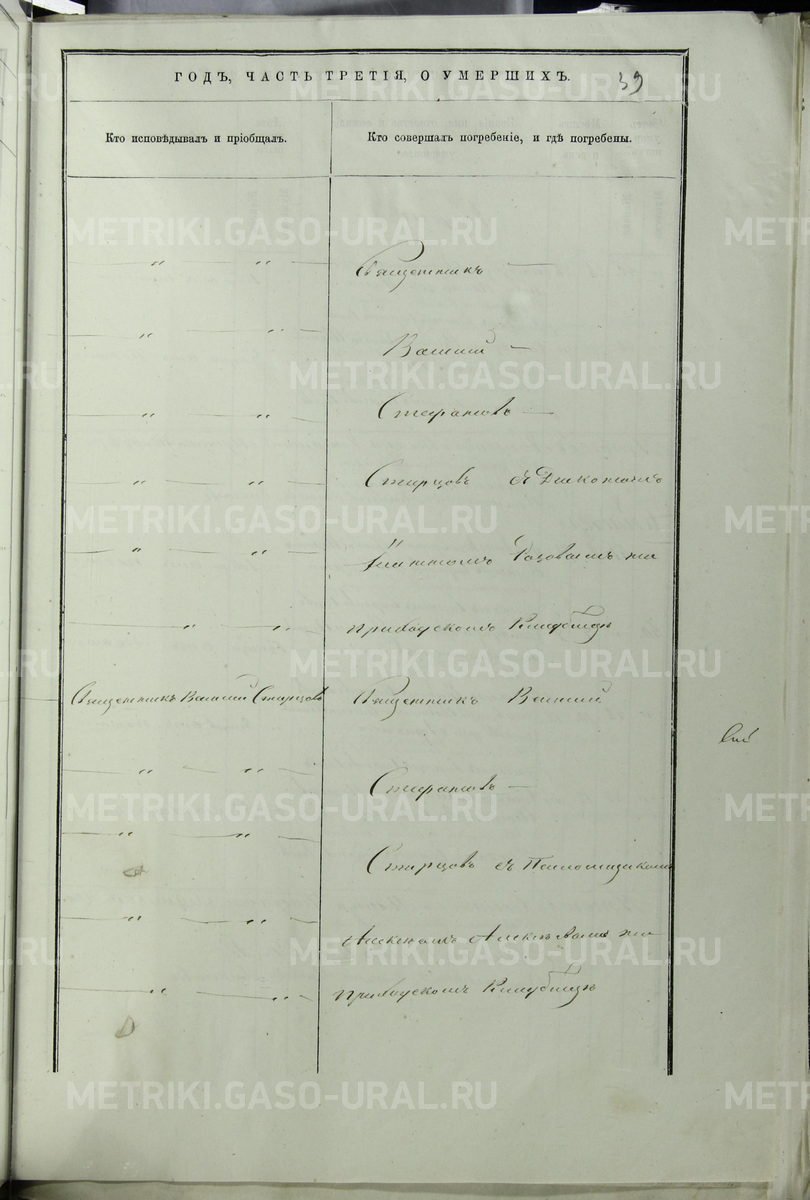 ГОДЪ, ЧАСТЬ ТРЕТІЯ, О УМЕРШИХЪ. 39
Кто исповѣдывалъ и пріобщалъ.
Кто совершалъ погребеніе, и гдѣ погребены.
Священникъ —
Василій —
Стефановъ —
Старцовъ съ Діакономъ
на
приходскомъ Кладбищѣ
Священникъ Василій Старцовъ
Священникъ Василій
Стефановъ —
Старцовъ съ Псаломщикомъ
Алексѣемъ на
приходскомъ Кладбищѣ
METRIKI.GASO-URAL.RU